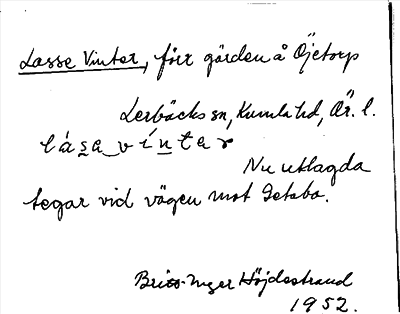 Lasse Vinter, förr gården å Öjetorp
Lerbäcks sn, Kumla hd, Ör. l.
lása víntar
Nu utlagda
tegar vid vägen mot Getabo.
Britt-Inger Höjdestrand
1952.